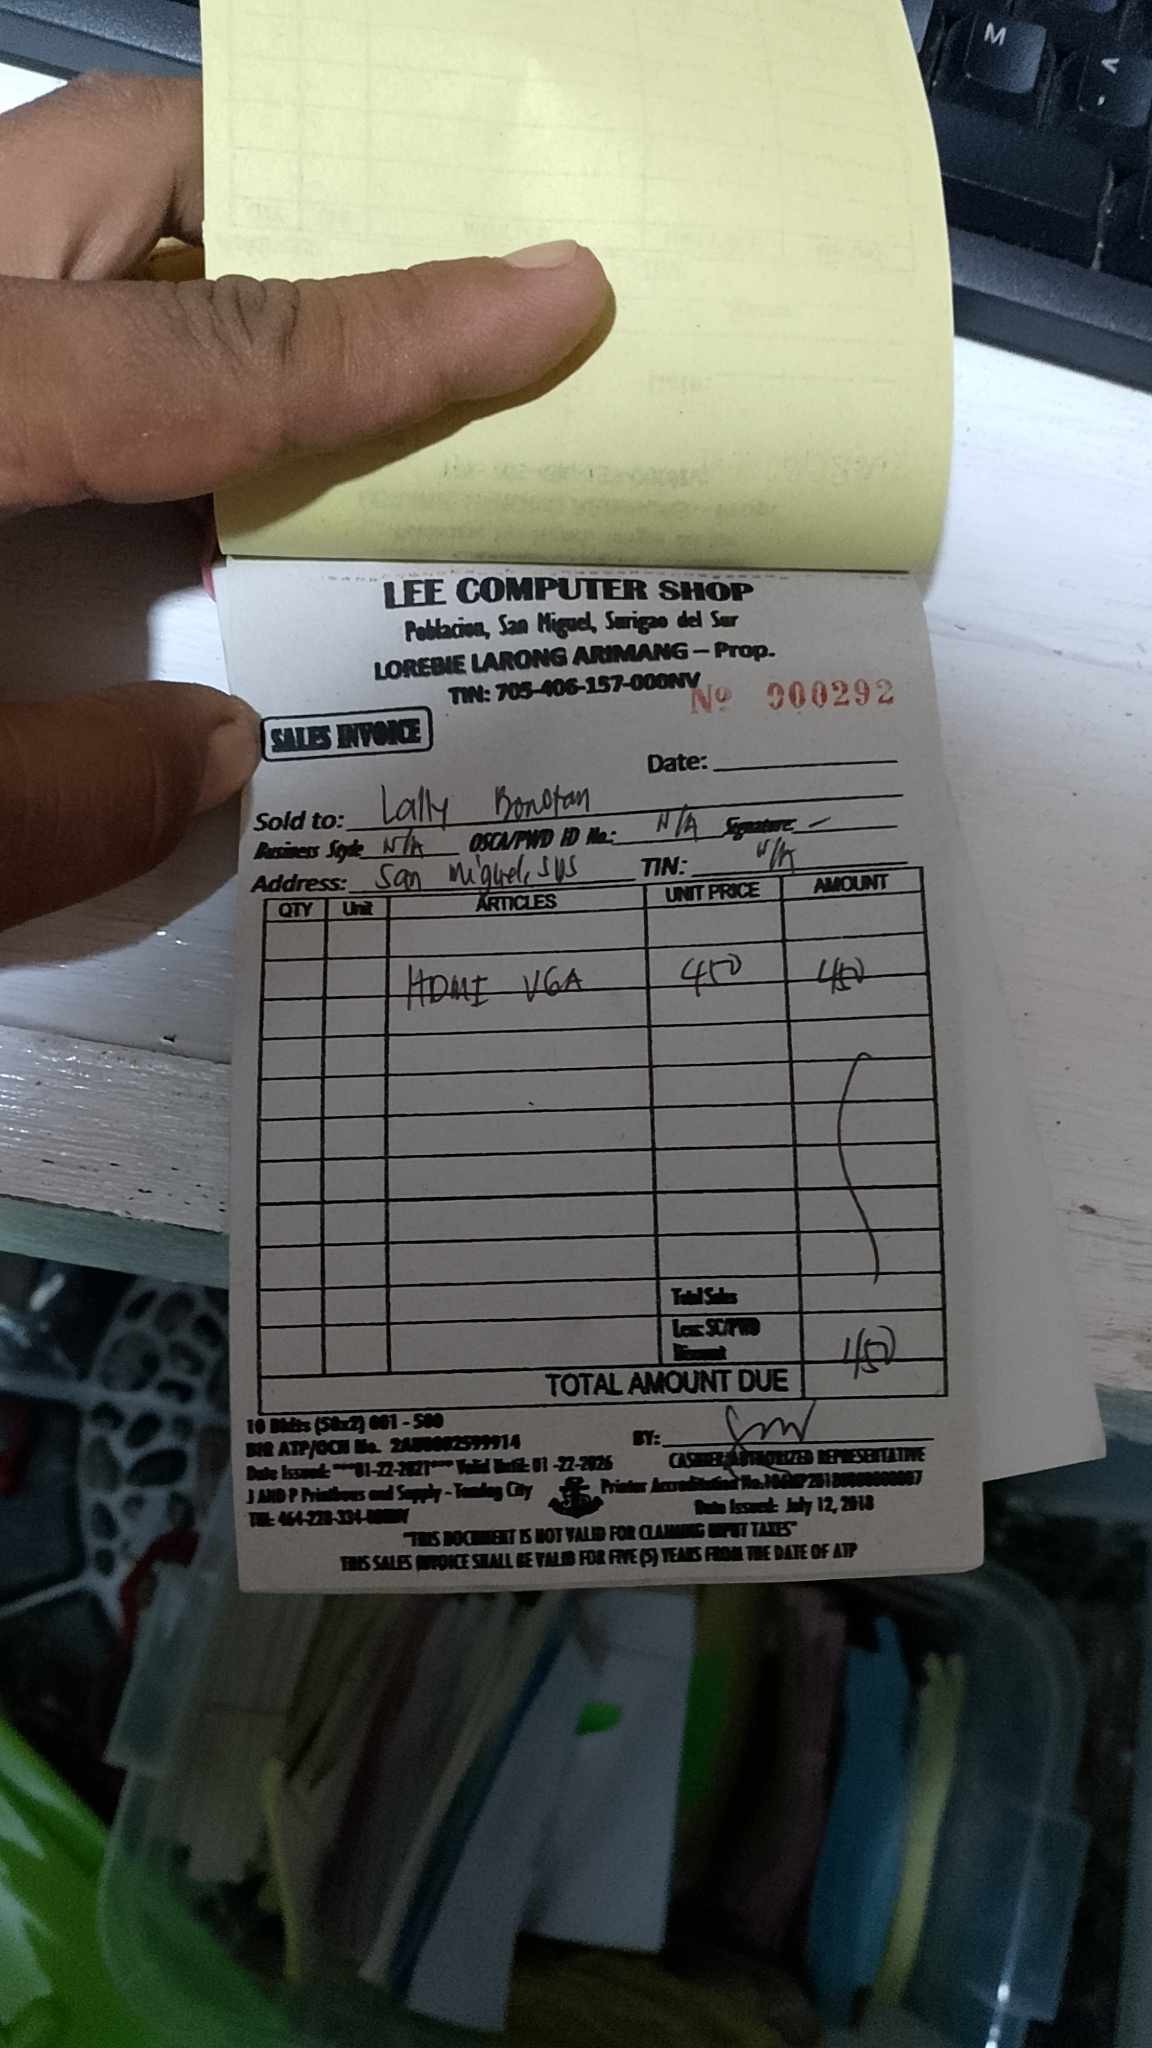 M
LEE COMPUTER SHOP
Poblacion, San Miguel, Surigao del Sur
LOREBIE LARONG ARIMANG – Prop.
TIN: 705-406-157-000NV
Nº 000292
SALES INVOICE
Date:
Sold to: Lally Bonotan
Business Style N/A OSCA/PWD ID No.: N/A Signature:
Address: San Miguel, SDS TIN: N/A
QTY Unit ARTICLES UNIT PRICE AMOUNT
HDMI VGA 450 450
Total Sales
Less: SC/PWD
Discount
450
TOTAL AMOUNT DUE
10 Bklts (50x2) 001 - 500
BIR ATP/OCN No. 2AU0002599914
BY:
CASHIER/AUTHORIZED REPRESENTATIVE
Date Issued: ***01-22-2021*** Valid Until: 01-22-2026
J AND P Printhous and Supply - Tandag City
Printer Accreditation No.
TIN: 464-228-334-000NV
Date Issued: July 12, 2018
"THIS DOCUMENT IS NOT VALID FOR CLAIMING INPUT TAXES"
THIS SALES INVOICE SHALL BE VALID FOR FIVE (5) YEARS FROM THE DATE OF ATP